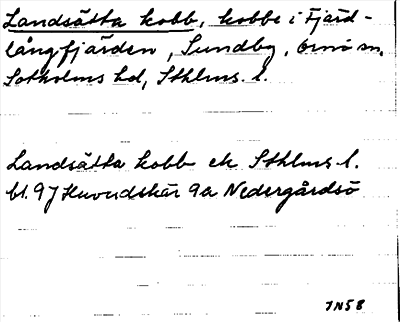 Landsätta kobb, kobbe i Fjärd-
långfjärden, Sundby, Ornö sn,
Sotholms hd, Sthlms l.
Landsätta kobb ek Sthlms l.
bl. 97 Huvudskär 9a Nedergårdsö
7N58